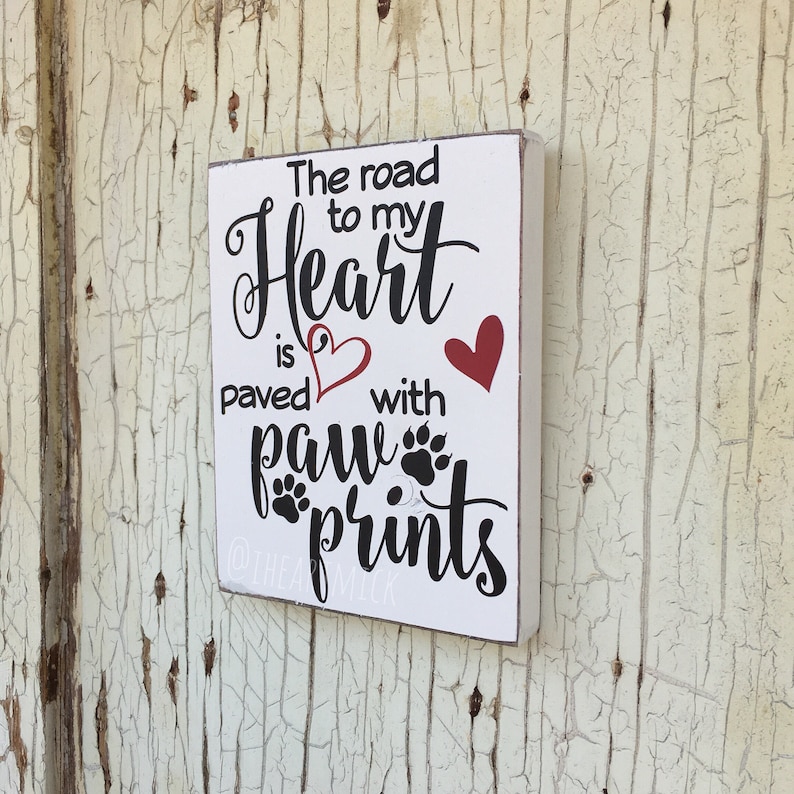 The road
to my
Heart
is
paved with
paw
prints
@IHEARTMICK